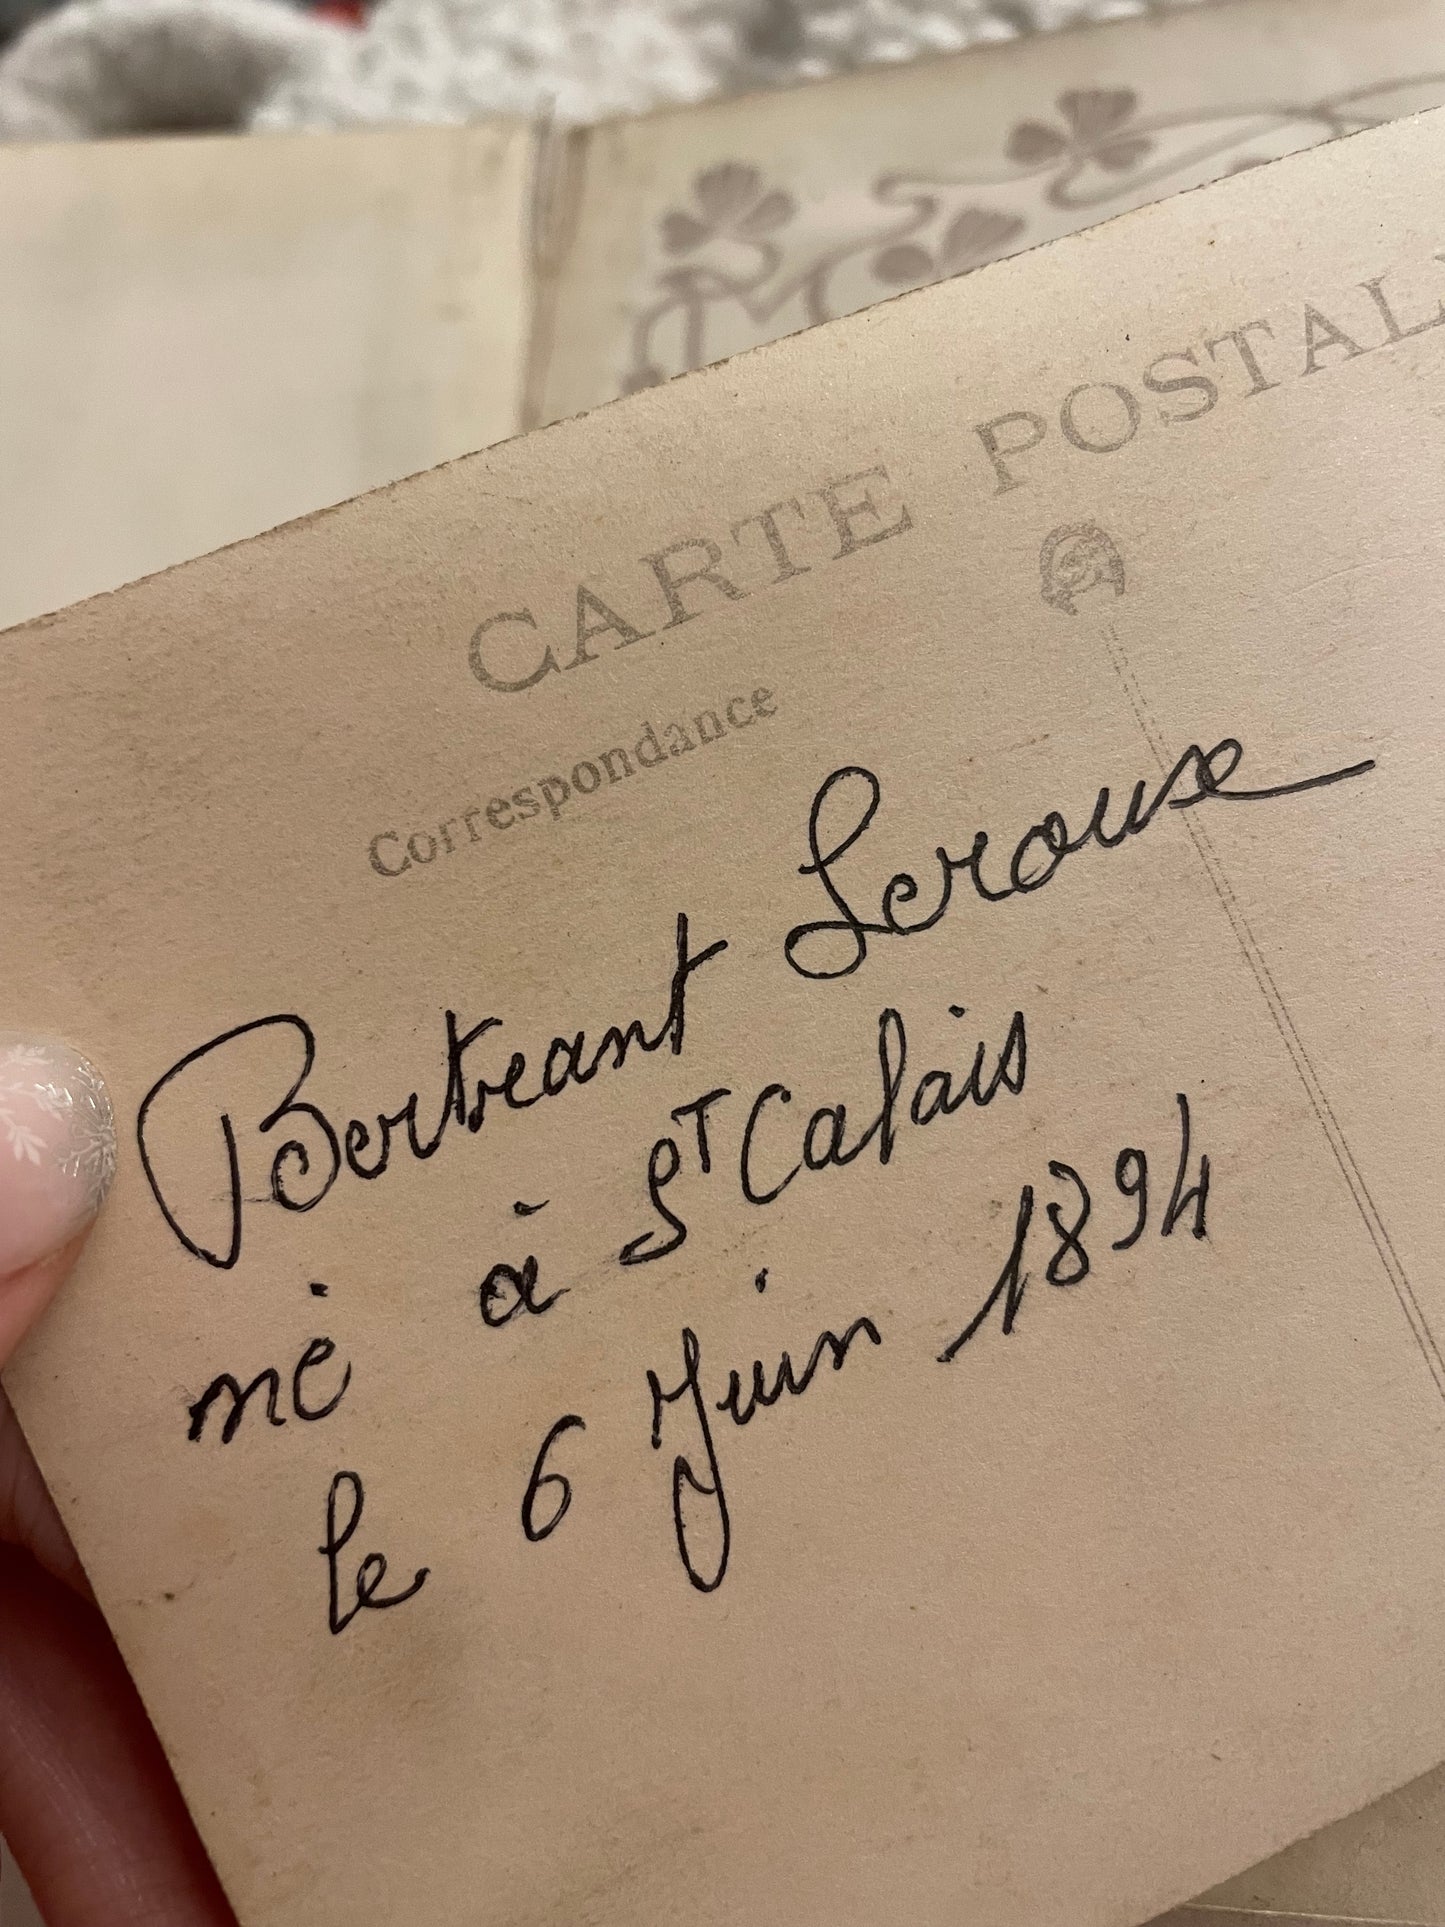 CARTE POSTAL
Correspondance
Bertrant Leroux
né à S^T Calais
le 6 Juin 1894